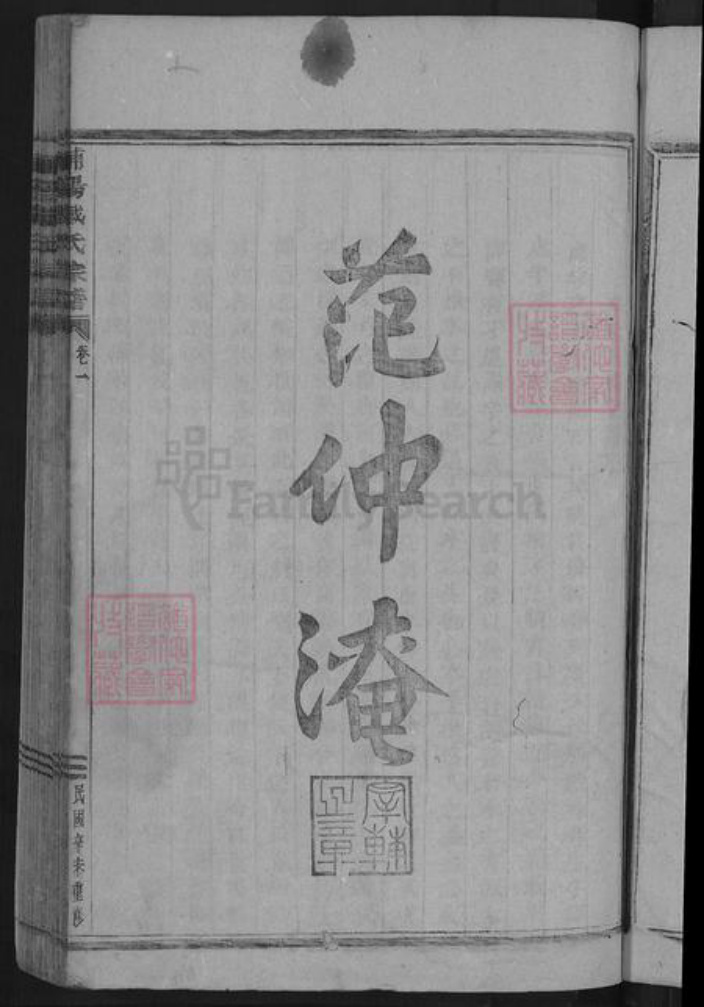 范仲淹
宰輔之章
浦陽戚氏宗譜
卷一
民國辛未重修
FamilySearch